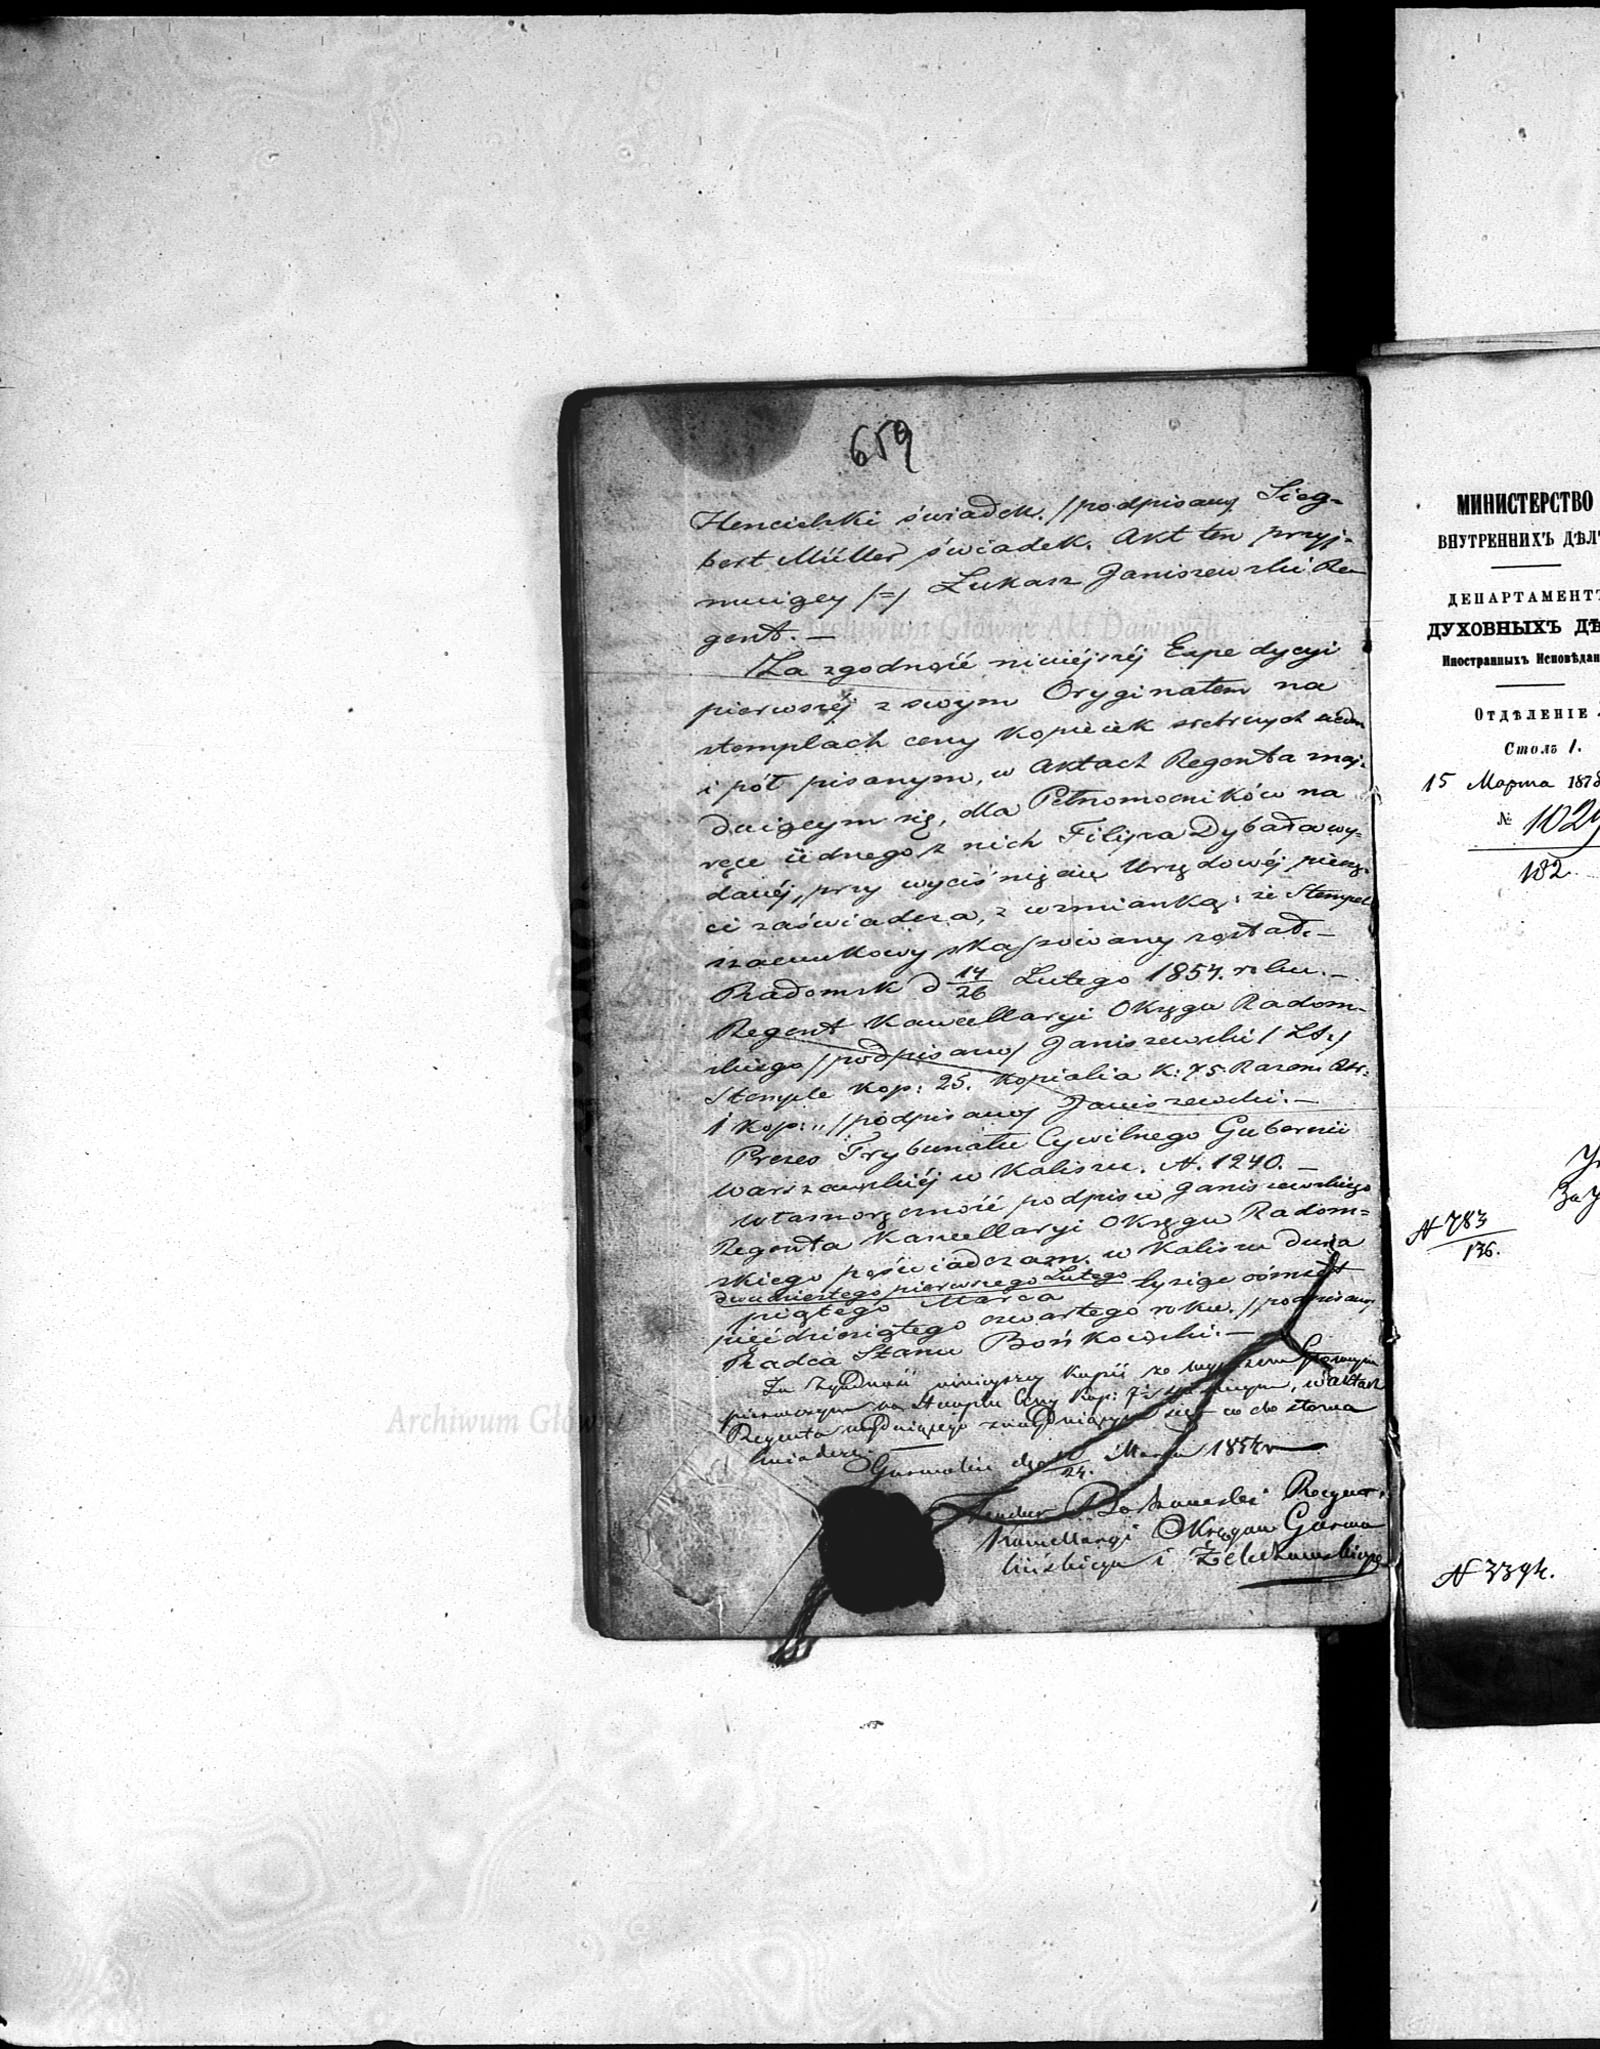 659
Hencielski świadek. /podpisany/ Sieg-
bert Müller świadek. Akt ten przyj-
muigcy /=/ Łukasz Janiszewski Re-
gent. —
Za zgodność niniejszéj Expedycyi
pierwszéj z swym Oryginałem na
stemplach ceny kopieiek srebrnych siedm
i pół pisanym, w aktach Regenta znaj-
duigcym się, dla Pełnomocników na
ręce iednego z nich Filipa Dybała wy-
danéj, przy wyciśnięciu Urzędowéj pieczę-
ci zaświadcza, z wzmianką: że Stempel
szacunkowy skassowany został. —
Radomsk d 14/26 Lutego 1854. roku. —
Regent Kancellaryi Okręgu Radom-
skiego /podpisany/ Janiszewski / LS./
Stemple kop: 25. kopialia k: 75. Razem Rsr:
1 kop: „ /podpisany/ Janiszewski. —
Prezes Trybunału Cywilnego Gubernii
Warszawskiéj w Kaliszu. N. 1240. —
własnoręczność podpisu Janiszewskiego
Regenta Kancellaryi Okręgu Radom=
skiego poświadczam. w Kaliszu dnia
dwudziestego pierwszego Lutego
piątego Marca tysiąc ośmset
pięćdziesiątego czwartego roku. /podpisany/
Radca Stanu Bońkowski. —
Za zgodność niniejszey kopii ze
pierwszym na Stemplu Ceny Kop: 7½ , w aktach
Regenta znajdującym się co do słowa
świadczę. —
Garwolin Marca 1854 r
Regent
Kancellaryi Okręgu Garwo
lińskiego i Żelechowskiego
Archiwum Główne Akt Dawnych
Archiwum Główne
МИНИСТЕРСТВО
ВНУТРЕННИХЪ ДѢЛЪ
ДЕПАРТАМЕНТЪ
ДУХОВНЫХЪ ДѢ
Иностранныхъ Исповѣдан
ОТДѢЛЕНІЕ
Столъ 1.
15 Марта 1878
№ 1029
182.
N 783
136.
N 3394.